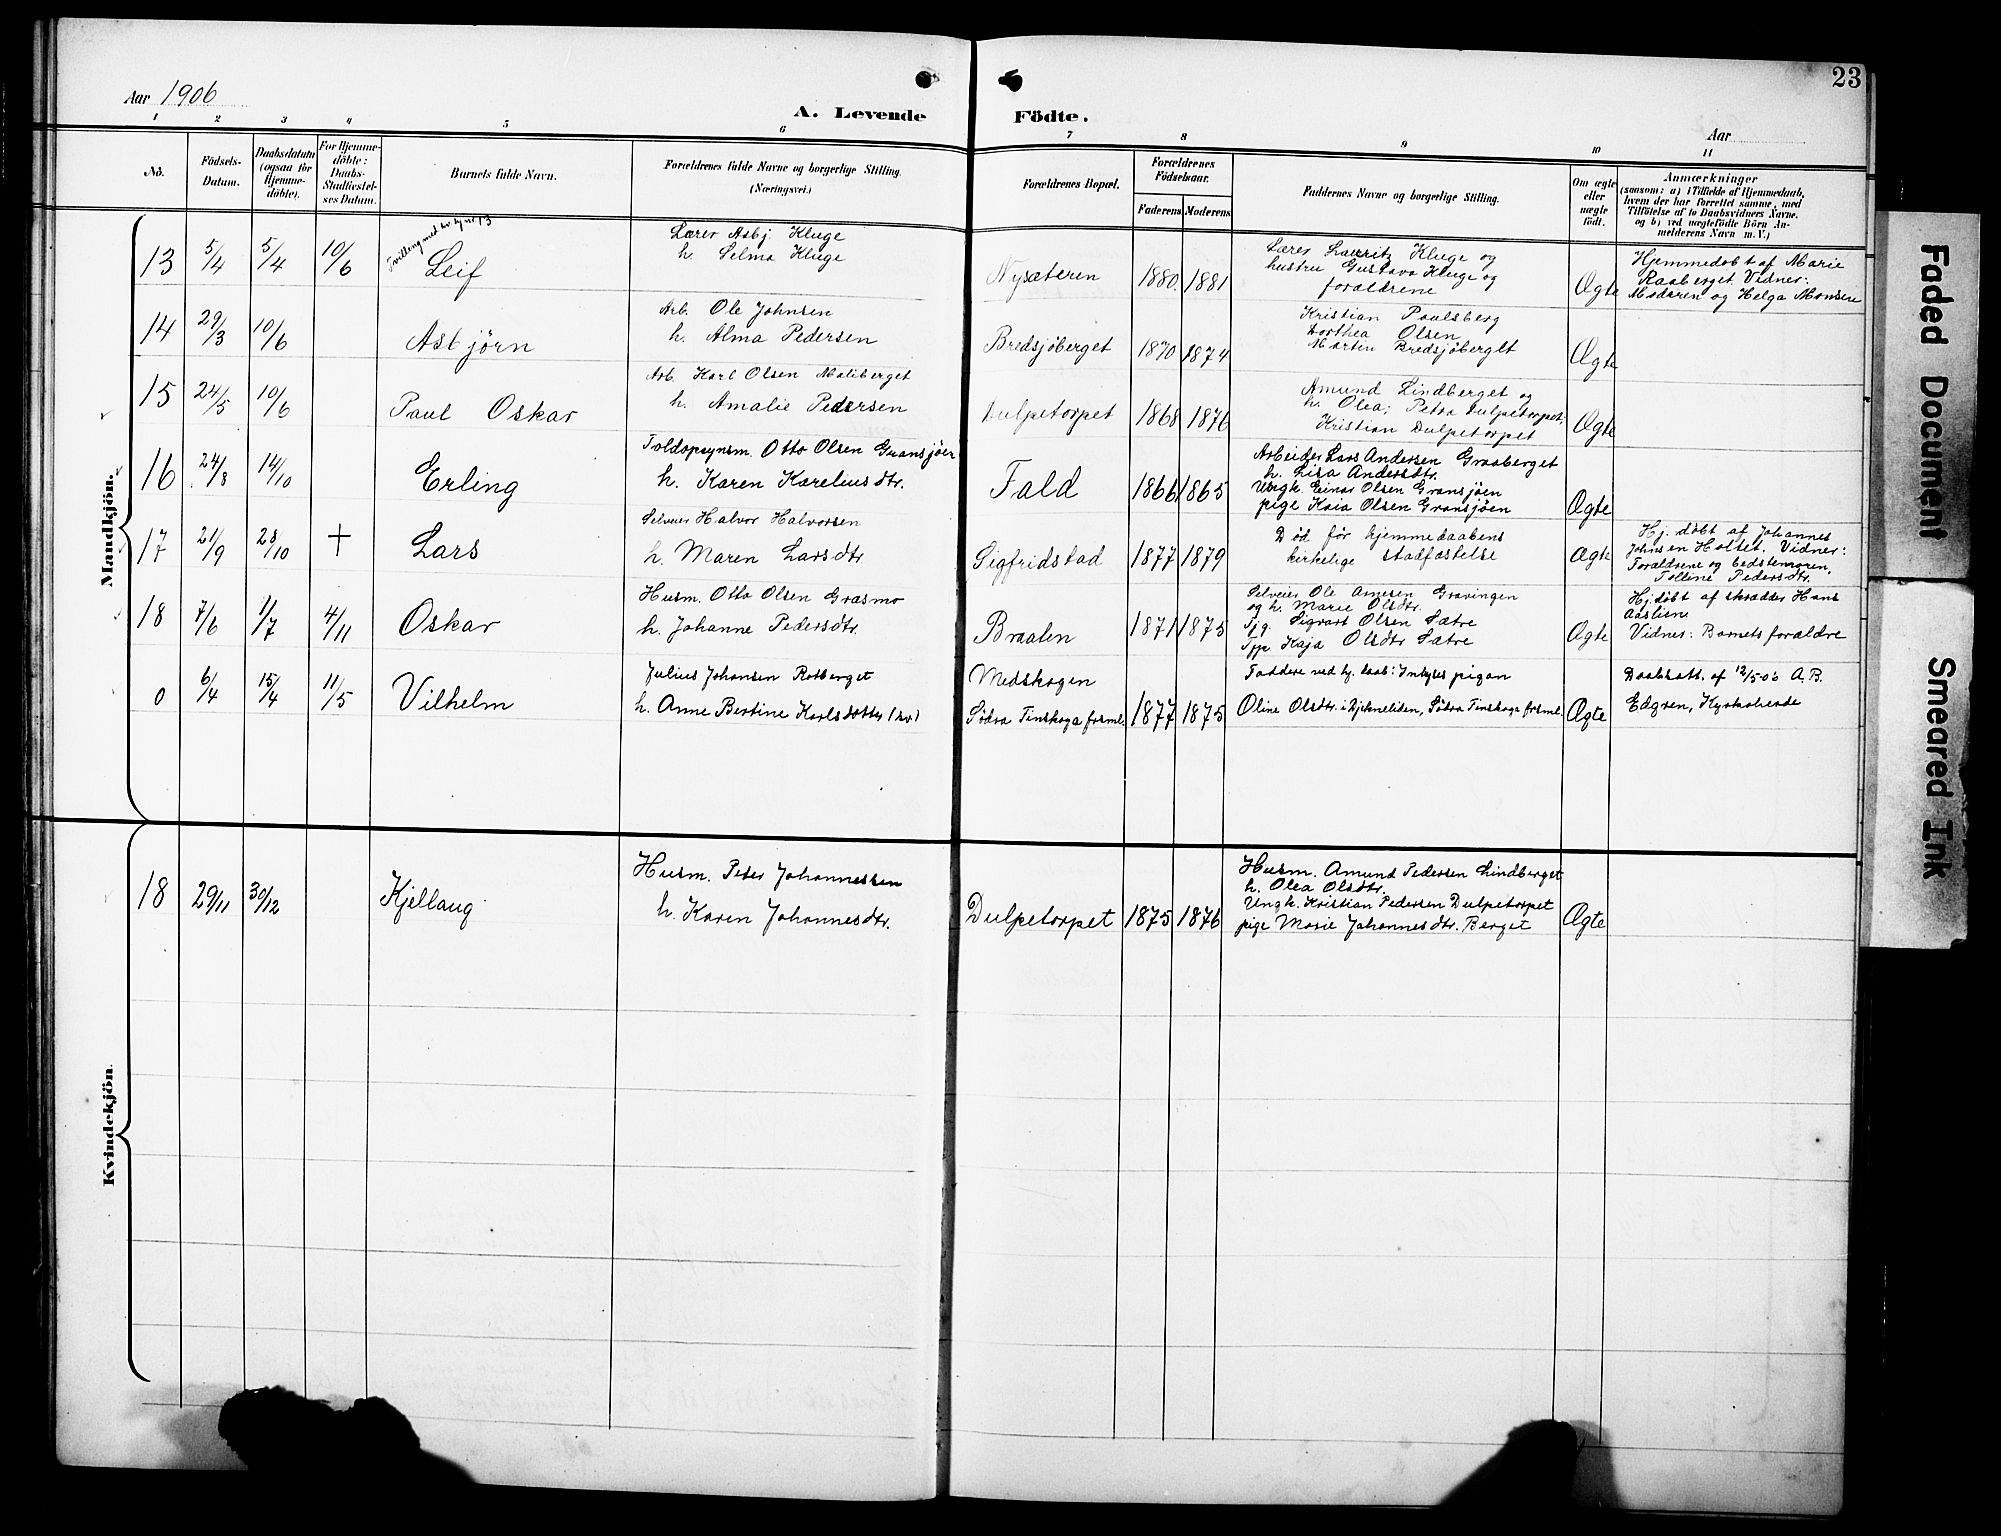 23
Aar 1906
A. Levende Födte.
Aar
1 2 3 4 5 6 7 8 9 10 11
No.
Födsels-
Datum.
Daabsdatum
(ogsaa för
Hjemme-
döbte).
For Hjemme-
döbte:
Daabs-
Stadfæstel-
ses Datum.
Barnets fulde Navn.
Forældrenes fulde Navne og borgerlige Stilling.
(Næringsvei.)
Forældrenes Bopæl.
Forældrenes
Födselsaar.
Faderens Moderens
Faddernes Navne og borgerlige Stilling.
Om ægte
eller
uægte
födt.
Anmærkninger
(saasom: a) i Tilfælde af Hjemmedaab,
hvem der har forrettet samme, med
Tilföielse af to Daabsvidners Navne.
og b) ved uægtefödte Börn An-
melderens Navn m. V.)
Mandkjön.
13 5/4 5/4 10/6
Tvilling med
Leif
Lærer Asbj Kluge
h. Selma Kluge
Nysæteren 1880. 1881
Lærer Lauritz Kluge og
hustru Gustava Kluge og
forældrene
Ægte
Hjemmedøbt af Marie
Raaberget Vidner:
Moderen og Helga Monsen
14 29/3 10/6
Asbjørn
Arb. Ole Johnsen
h. Alma Pedersen
Bredsjøberget 1870 1874
Kristian Paulsberg
Dorthea Olsen
Martin Bredsjøberget
Ægte
15 24/5 10/6
Paul Oskar
Arb. Karl Olsen Maliberget
h. Amalie Pedersen
Dulpetorpet 1868 1876
Amund Lindberget og
h. Olea; Petra Dulpetorpet,
Kristian Dulpetorpet
Ægte
16 24/8 14/10
Erling
Toldopsynsm. Otto Olsen Gransjøen
h. Karen Kareliusdtr.
Fald 1866 1865
Arbeider Lars Andersen Graaberget
h. Lisa Andersdtr.
Ungk. Einar Olsen Gransjøen
pige Kaia Olsen Gransjøen
Ægte
17 21/9 28/10 +
Lars
Selveier Halvor Halvorsen
h. Maren Larsdtr.
Sigfridstad 1877 1879
Død før hjemmedaabens
kirkelige stadfæstelse
Ægte
Hj. døbt af Johannes
Johnsen Holset. Vidner:
Forældrene og bedstemoren,
Tolline Pedersdtr.
18 7/6 1/7 4/11
Oskar
Husm. Otto Olsen Grasmo
h. Johanne Pedersdtr.
Braaten 1871 1875
Selveier Ole Arnesen Gravingen
og h. Marie Olsdtr.
Tjg. Sigvart Olsen Sætre
Tjp. Kaja Olsdtr Sætre
Ægte
Hj. døbt af skrædder Hans
Aaslien
Vidner: Barnets forældre
0 6/4 15/4 11/5
Vilhelm
Julius Johansen Rotberget
h. Anne Bertine Karlsdotter
Medskogen
Södra Finskoga frsml. 1877 1875
Faddere ved hj. daab: pigan
Oline Olsdtr. i Södra Finskoga frsml.
Ægte
Daabsatt. af 12/5 06 A.B.
Edgren, Kyrkoherde
Kvindekjön.
18 29/11 30/12
Kjellaug
Husm. Peder Johannessen
h. Karen Johannesdtr.
Dulpetorpet 1875 1876
Husm. Amund Pedersen Lindberget
h. Olea Olsdtr.
Ungk. Kristian Pedersen Dulpetorpet
pige Marie Johannesdtr. Berget
Ægte
Faded Document
Smeared Ink